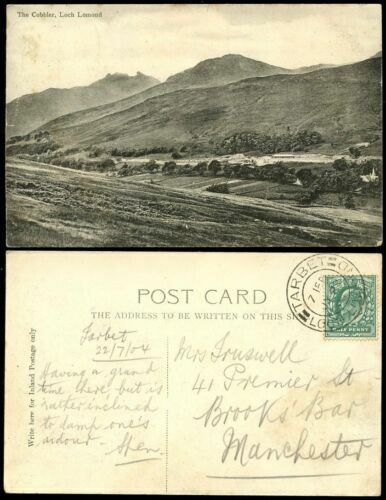 The Cobbler, Loch Lomond
POST CARD
THE ADDRESS TO BE WRITTEN ON THIS SI
Write here for Inland Postage only
Tarbet
22/7/04
Having a grand
time here, but is
rather inclined
to damp one's
ardour -
Mrs Truswell
41 Premier St
Brooks' Bar
Manchester
TARBET
HALF PENNY